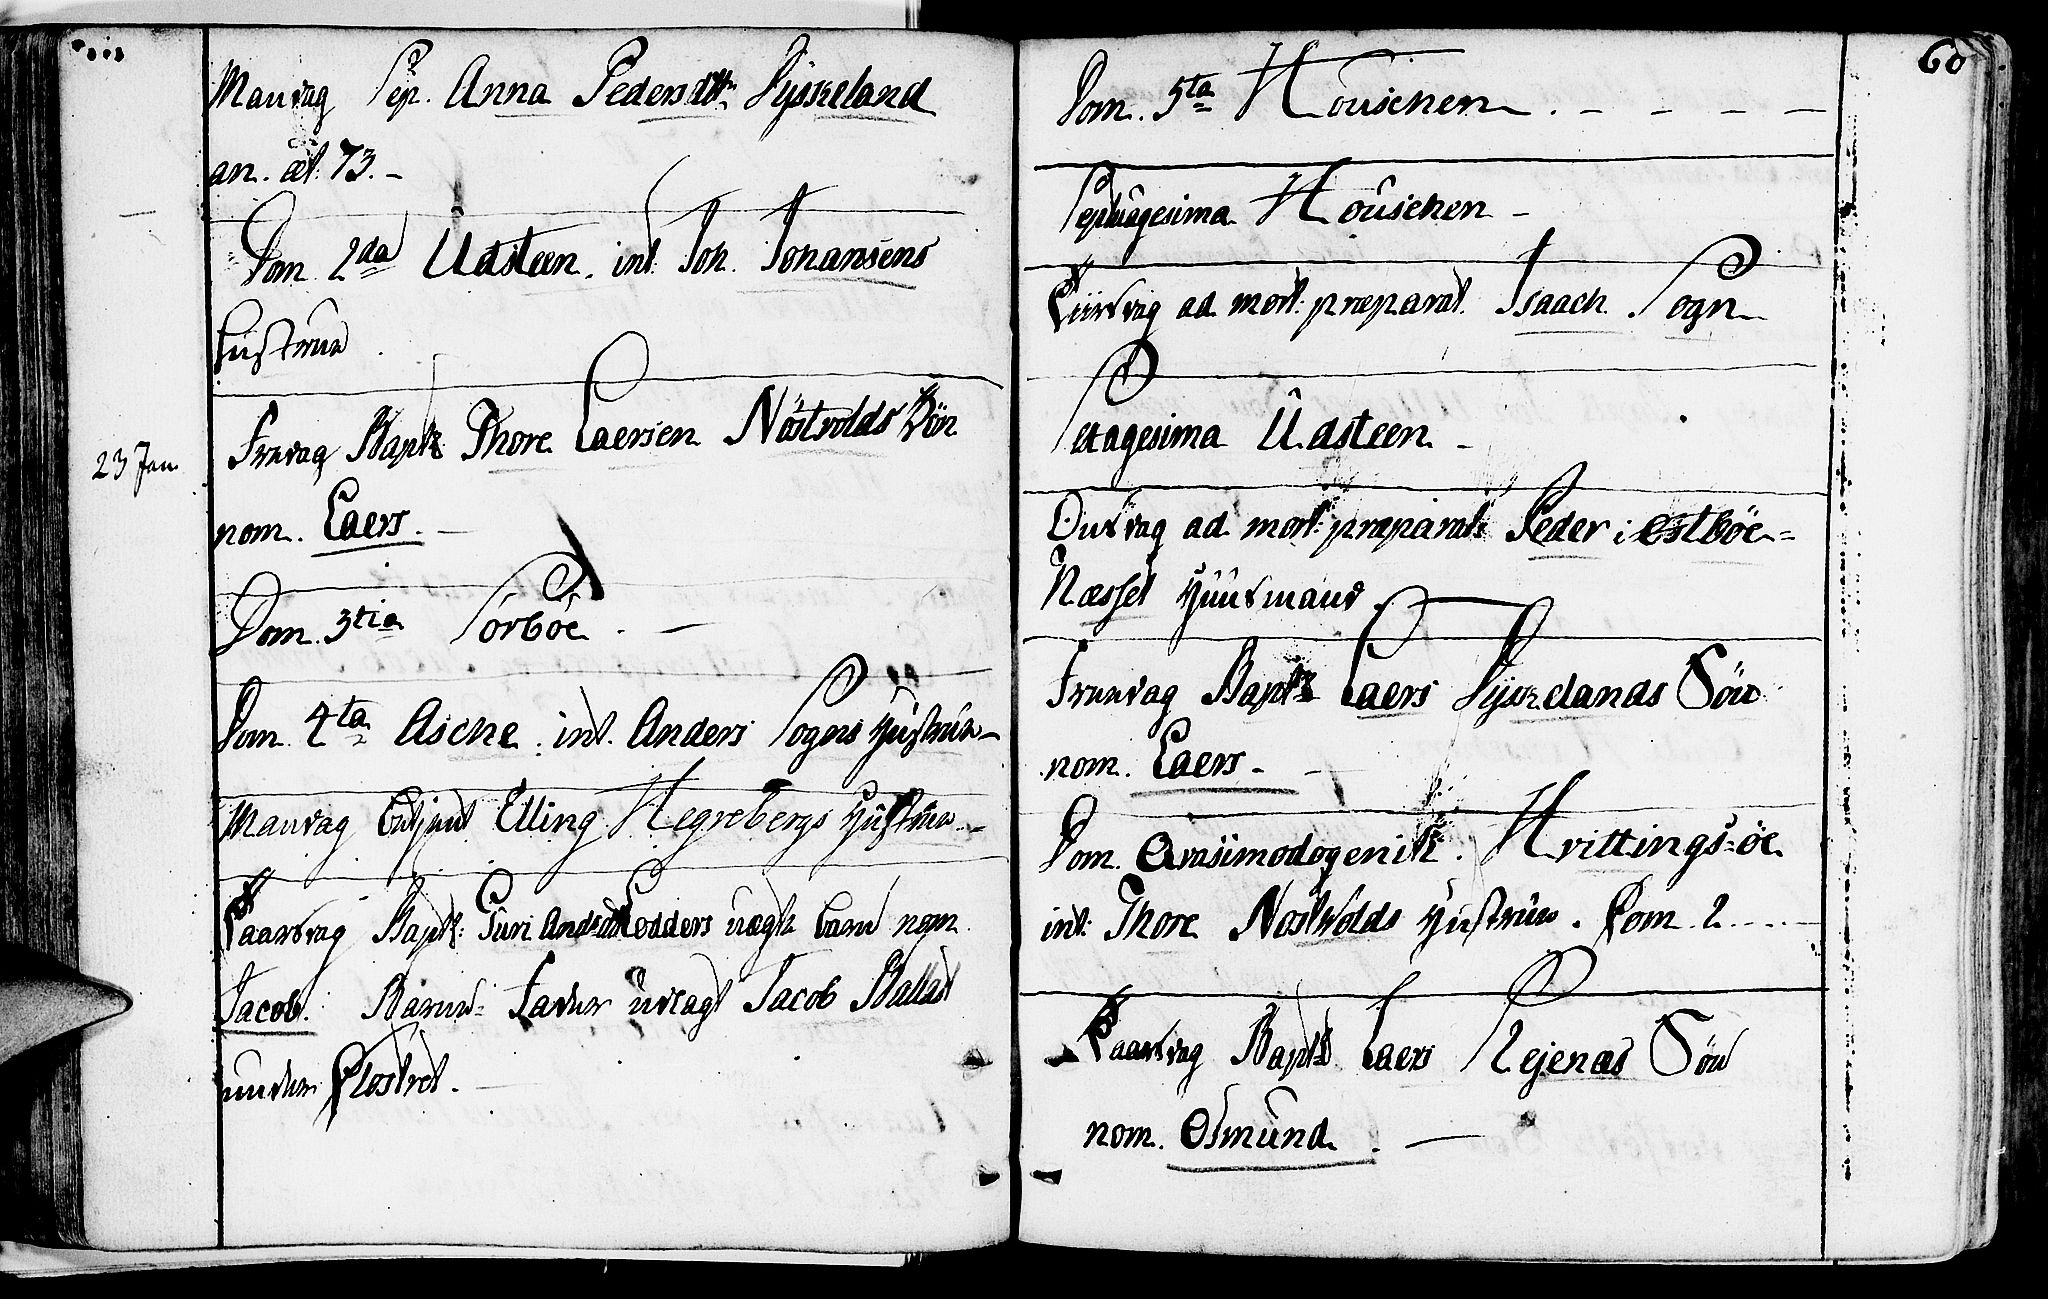 Mandag Sep. Anna Pedersdttr Sysseland
an. æt. 73. –
Dom 2da Udsteen. int. Joh. Johansens
hustrue
23 Jan
Fredag Bapt: Thore Laersen Nöstvolds Sön
nom. Laers. –
Dom. 3tia Sörböe. –
Dom. 4ta Asche. int. Anders Sognes Hustrue –
Mandag Elling Hegrebergs Hustrue –
Bapt: Guri barn nom.
Jacob. Barne-Fader Jacob
under Klostret. –
60
Dom. 5ta Houschen. – – – – –
Septuagesima Houschen –
ad mort: præparat. Isaach. Sogn
Sexagesima Udsteen –
Onsdag ad mort: præparat: Peder i Östböe=
Næsset Huusmand.
Fredag Bapt: Laers Sysselands Sön
nom. Laers –
Dom. Qvasimodogenit. Hvittings-öe
int: Thore Nöstvolds Hustrue. Dom. 2....
Bapt: Laers Rejenæs Sön
nom. Osmund. –